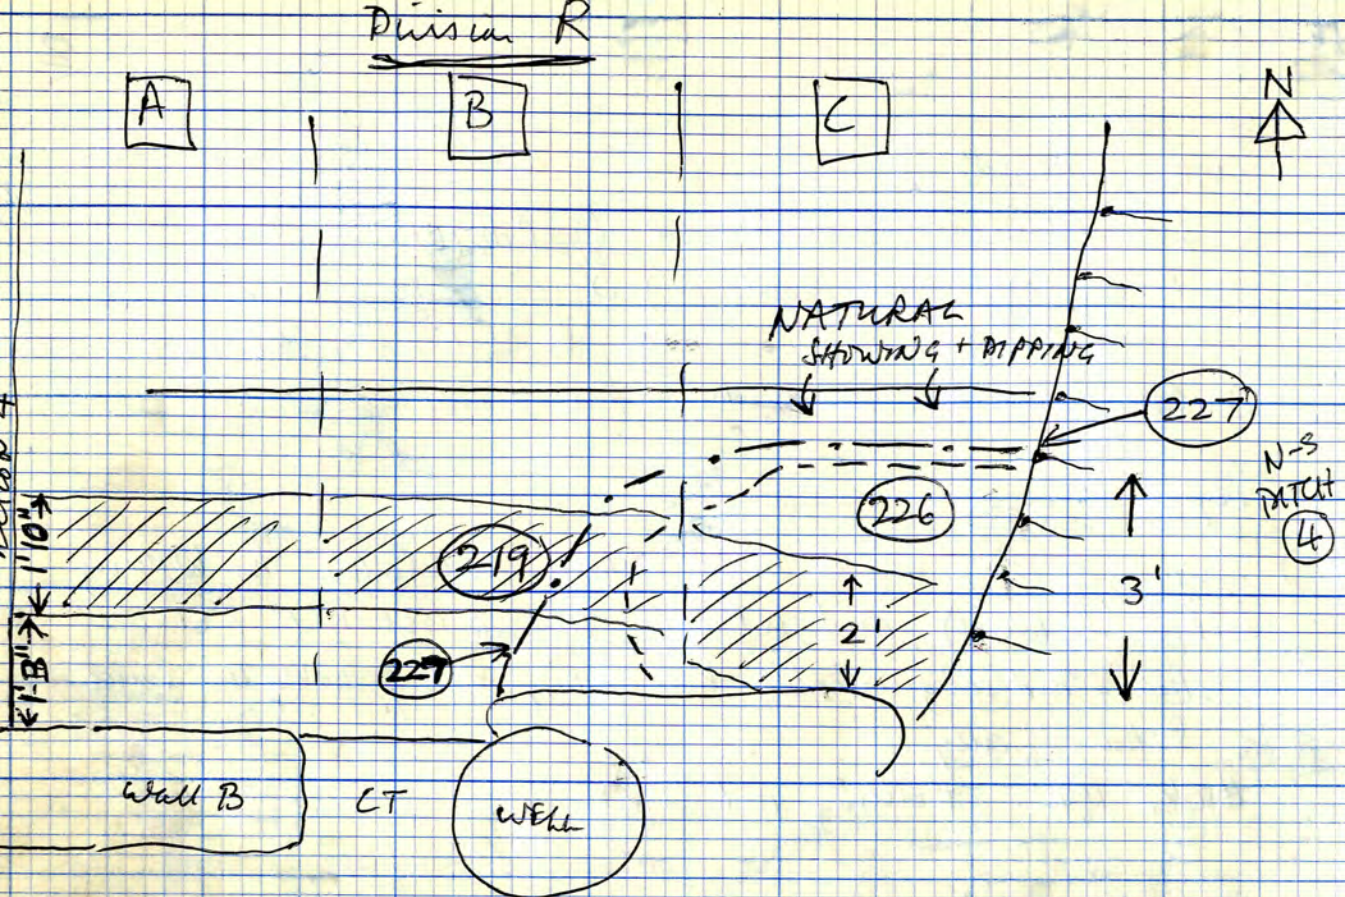 Division R
A
B
C
N
NATURAL
SHOWING + DIPPING
227
N-S
DITCH
4
226
219
1'10"
3'
2'
227
1'8"
Wall B
CT
WELL